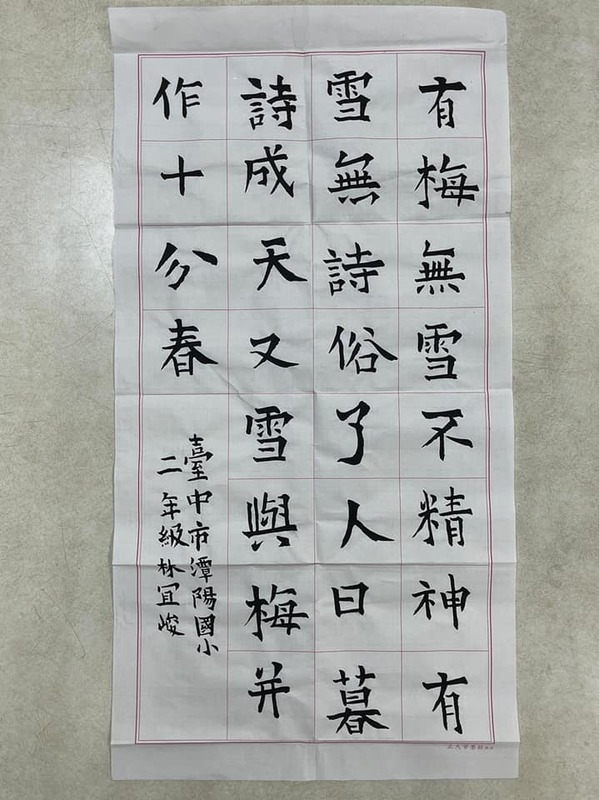 有梅無雪不精神有
雪無詩俗了人日暮
詩成天又雪與梅并
作十分春
臺中市潭陽國小
二年級林宜峻